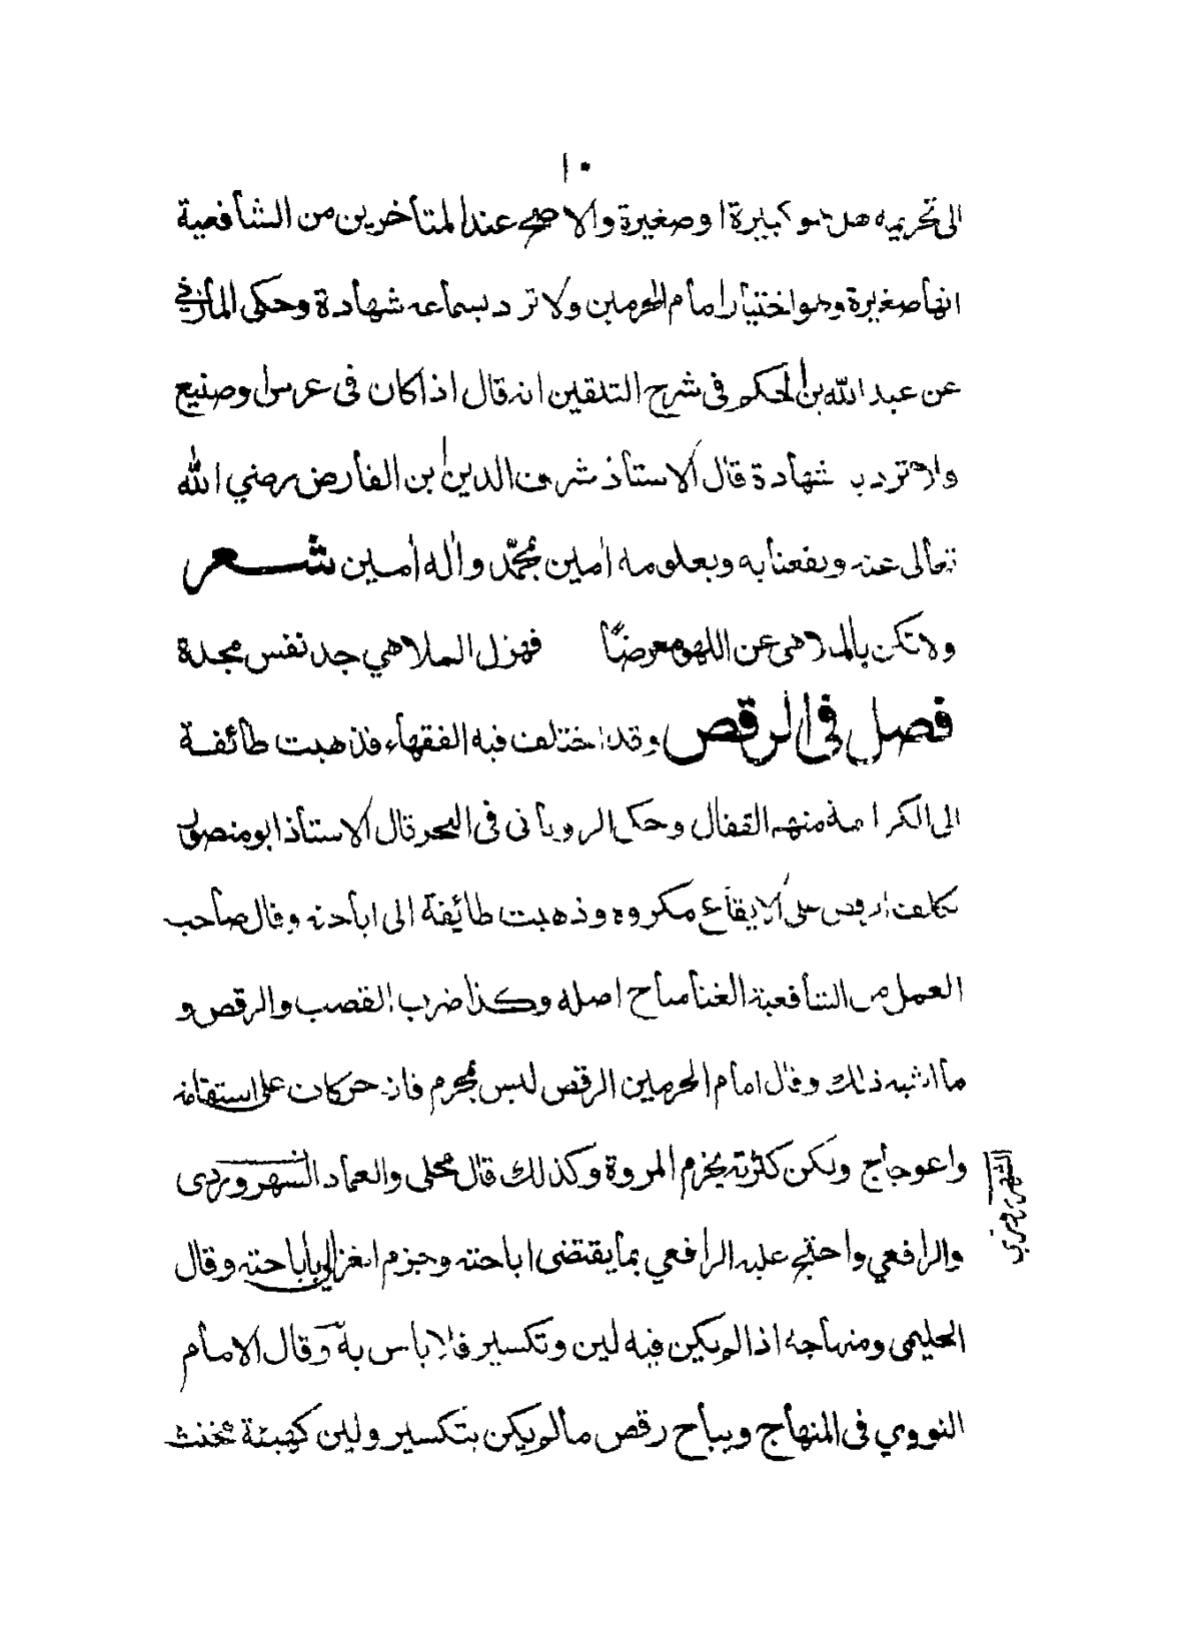 ١٠
الى تحريمه هل هو كبيرة او صغيرة والاصح عند المتأخرين من الشافعية
انها صغيرة وهو اختيار امام الحرمين ولا ترد بسماعه شهادة وحكى المازرى
عن عبد الله بن الحكم فى شرح التلقين انه قال اذا كان فى عرس او صنيع
ولا ترد به شهادة قال الاستاذ شرف الدين ابن الفارض رضي الله
تعالى عنه ونفعنا به وبعلومه امين بمحمّد واله امين شعر
ولا تكن بالملاهى عن اللهو معرضًا فهزل الملاهي جد نفس مجدة
فصل فى الرقص وقد اختلف فيه الفقهاء فذهبت طائفة
الى الكراهة منهم القفال وحكى الروياني فى البحر قال الاستاذ ابو منصور
تكلف الرقص على الايقاع مكروه وذهبت طائفة الى اباحته وقال صاحب
العمل من الشافعية الغنا مباح اصله وكذا ضرب القصب والرقص و
ما اشبه ذلك وقال امام الحرمين الرقص ليس بمحرم فانه حركات على استقامة
واعوجاج ولكن كثرته يخرم المروة وكذلك قال محلى والعماد السهروردى
والرافعي واحتج عليه الرافعي بما يقتضى اباحته وجزم الغزالى باباحته وقال
الحليمى ومنهاجه اذا لم يكن فيه لين وتكسير فلا باس به وقال الامام
النووي فى المنهاج ويباح رقص ما لم يكن بتكسير ولين كهيئة مخنث